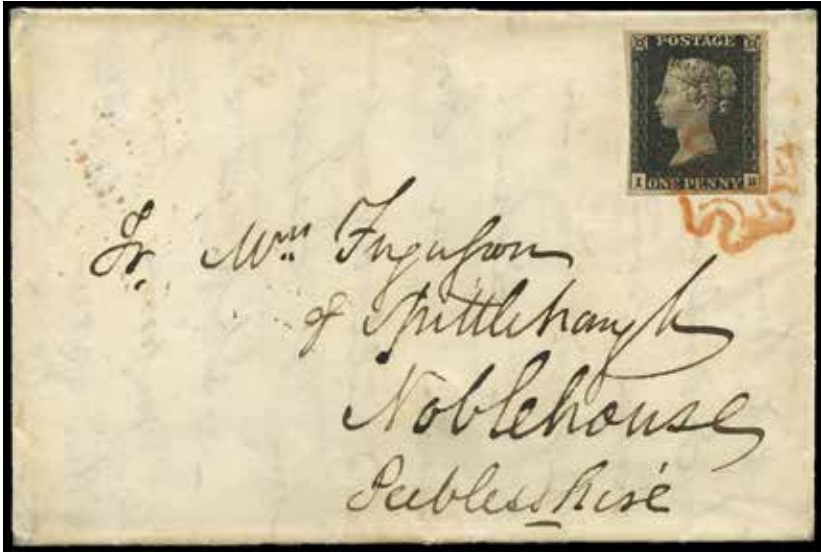 POSTAGE
I ONE PENNY B
Wm Ferguson
of Spittlehaugh
Noblehouse
Peeblesshire